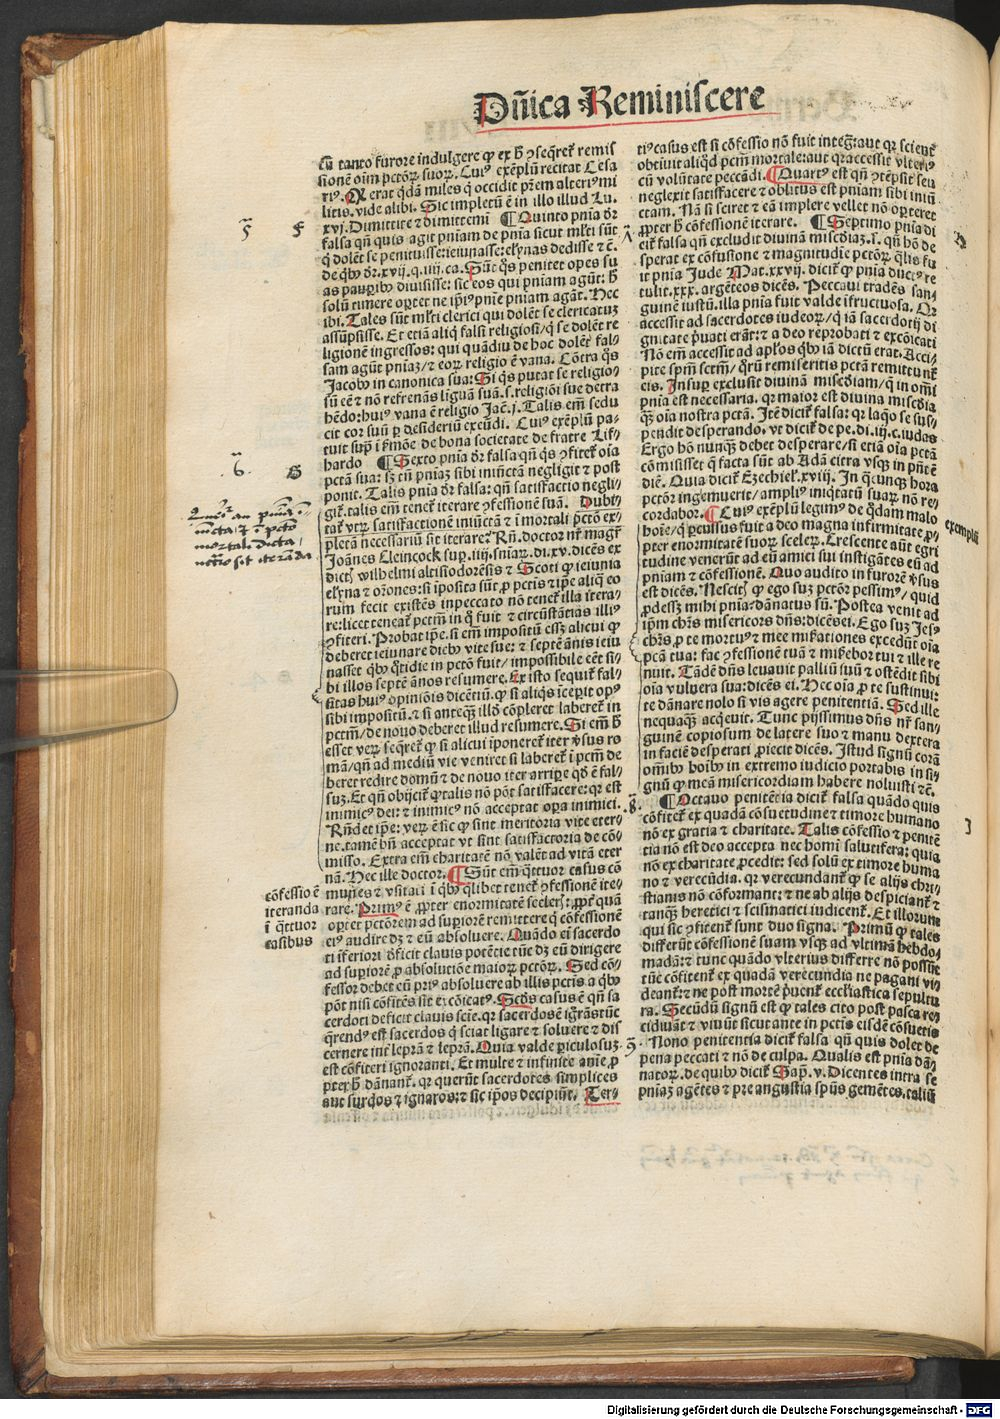 Dñica Reminiscere
cū tanto furore indulgere ꝙ ex h̄ ꝯseq̄ret᷑ remis
sionē oīm pctōꝝ suoꝝ. Cuiꝰ exēplū recitat Cesa
riꝰ. Erat q̄dā miles q̇ occidit p̄em alteriꝰ mi
litis. vide alibi. Sic impletū ē in illo illud Lu.
xvj. Dimittite ⁊ dimittemi ¶ Quinto pnīa dr̄
falsa qn̄ quis agit pniam de pnīa sicut ml̄ti sūt
q̇ dolēt se penituisse: ieiunasse: elꝫnas dedisse ⁊ c̄.
de qb̰ dr̄. xvij. q. iiij. ca. Sūt q̄s penitet opes su
as paupib̰ diuisisse: sic eos qui pniam agūt: h̄
solū timere oꝑtet ne ip̄iꝰ pnīe pniam agāt. Hec
ibi. Tales sūt ml̄ti clerici qui dolēt se clericatū
assūpsisse. Et etiā aliq̇ falsi religiosi/ q̇ se dolēt re
ligionē ingressos: qui quādiu de hoc dolēt fal/
sam agūt pniaꝫ/ ⁊ eoꝝ religio ē vana. Cōtra q̄s
Jacobꝰ in canonica sua: Si q̇s putat se religio/
sū eē ⁊ nō refrenās liguā suā. s. religiōi sue detra
hēdo: huiꝰ vana ē religio Jac̄. j. Talis em̄ sedu
cit cor suū ꝑ desideriū exeūdi. Cuiꝰ exēplū pa/
tuit sup̄ i s̄mōe de bona societate de fratre Lif/
hardo ¶ Sexto pnīa dr̄ falsa qn̄ q̇s ꝯfitet᷑ oīa
pctā sua: sꝫ tn̄ pniaꝫ sibi iniūctā negligit ⁊ post
ponit. Talis pnīa dr̄ falsa: qn̄ satisfactio negli/
git᷑. talis em̄ tenet᷑ iterare ꝯfessionē suā. Dubi/
tat᷑ vtꝝ satisfactionē iniūctā ⁊ i mortali pctō ex/
pletā necessariū sit iterare? Rn̄. doctor nr̄ mag̃r
Joānes Cleincock sup. iiij. sniaꝝ. di. xv. dicēs ex
dictꝭ wilhelmi altisiodorēsis ⁊ Scoti ꝙ ieiunia
elꝫna ⁊ or̄ones: si iposita sūt ꝓ pctis ⁊ ip̄e aliq̇ eo
rum fecit existēs inpeccato nō tenet᷑ illa itera/
re: licet teneat᷑ pctm̄ in q̇ fuit ⁊ circūstātias illiꝰ
ꝯfiteri. Probat ip̄e. si em̄ impositū eēꝫ alicui ꝙ
deberet ieiunare dieb̰ vite sue: ⁊ septē ānis ieiu
nasset qb̰ q̄tidie in pctō fuit/ impossibile eēt si/
bi illos septē ānos resumere. Ex isto sequit᷑ fal/
sitas huiꝰ opiniōis dicētiū. ꝙ si aliq̇s icepit opꝰ
sibi impositū. ⁊ si anteq̄ꝫ illd̄ cōpleret laberet᷑ in
pctm̄/ de nouo deberet illud resumere. Si em̄ h̄
esset veꝝ seq̄ret᷑ ꝙ si alicui iponeret᷑ iter v̓sus ro
mā/ qn̄ ad mediū vie veniret si laberet᷑ i pctm̄ de
beret redire domū ⁊ de nouo iter arripe qd̄ ē fal/
suꝫ. Et qn̄ obijcit᷑ ꝙ talis nō pōt satisfacere: qꝛ est
inimicꝰ dei: ⁊ inimicꝰ nō acceptat oꝑa inimici.
Rn̄det ip̄e: veꝝ ē sic ꝙ sint meritoria vite eter/
ne. tamē bn̄ acceptat vt sint satisfactoria de cō/
misso. Extra em̄ charitatē nō valēt ad vitā eter
nā. Hec ille doctor. ¶ Sūt em̄ q̄ttuor casus cō
munes ⁊ vsitati i qb̰ q̇libet tenet᷑ ꝯfessionē ite/
rare. Primꝰ ē ꝓpter enormitatē sceleris: ꝓpt̓ quā
oꝑtet pctōrem ad supiorē remittere q̇ cōfessionē
eiꝰ audire dꝫ ⁊ eū absoluere. Quādo ei sacerdo
ti iferiori deficit clauis potētie tūc dꝫ eū dirigere
ad supiorē ꝓ absolutiōe maioꝝ pctōꝝ. Sed cō/
fessor debet eū priꝰ absoluere ab illis pctis a qb̰
pōt nisi cōfitēs sit excōicatꝰ. Scd̄s casus ē qn̄ sa
cerdoti deficit clauis scīe. qꝛ sacerdos ē igrās tūc
q̄rend̰ est sacerdos q̇ sciat ligare ⁊ soluere ⁊ dis
cernere int̓ leprā ⁊ leprā. Quia valde piculosuꝫ
est cōfiteri ignoranti. Et multe ⁊ infinite anīe ꝓ
pter h̄ dānant᷑. qꝛ querūt sacerdotes simplices
aut surdos ⁊ ignaros: ⁊ sic ip̄os decipiūt. Ter/
tiꝰ casus est si cōfessio nō fuit integ̃: aut qꝛ scient̓
obticuit aliqd̄ pctm̄ mortale: aut qꝛ accessit vlteriꝰ
cū volūtate peccādi. ¶ Quartꝰ est qn̄ ꝯtēpsit seu
neglexit satisfacere ⁊ oblitus est pniam sibi iniū
ctam. Nā si sciret ⁊ eā implere vellet nō oꝑteret
ꝓpter h̄ cōfessionē iterare. ¶ Septimo pnīa di
cit᷑ falsa qn̄ excludit diuinā misc̄diaꝫ. s. qn̄ hō de
sperat ex cōfusione ⁊ magnitudīe pctōꝝ. q̄lis fu
it pnīa Jude Mat. xxvij. dicit᷑ ꝙ pnīa ductꝰ re
tulit. xxx. argēteos dicēs. Peccaui tradēs san/
guinē iustū. illa pnīa fuit valde ifructuosa. Qꝛ
accessit ad sacerdotes iudeoꝝ/ q̇ iā sacerdotij di
gnitate p̄uati erāt: ⁊ a deo reprobati ⁊ excōicati
Nō em̄ accessit ad apl̄os qb̰ iā dictū erat. Acci/
pite spm̄ sctm̄/ q̄rū remiseritis pctā remittunt᷑
eis. Insup exclusit diuinā misc̄diam/ q̄ in om̄i
pnīa est necessaria. qꝛ maior est diuina misc̄dia
q̄ꝫ oīa nostra pctā. Itē dicit᷑ falsa: qꝛ laq̇o se sus/
pendit desperando. vt dicit᷑ de pe. di. iij. c. iudas
Ergo hō nunq̄ꝫ debet desperare/ si etiā oīa pctā
cōmisisset q̄ facta sūt ab Adā citra vsq̄ꝫ in pn̄tē
diē. Quia dicit Ezechiel. xviij. In q̄cunqꝫ hora
pctōr ingemuerit/ ampliꝰ iniq̇tatū suaꝝ nō re/
cordabor. ¶ Cuiꝰ exēplū legimꝰ de q̇dam malo
hoīe/ q̇ ꝑcussus fuit a deo magna infirmitate ꝓ/
pter enormitatē suoꝝ sceleꝝ. Crescente aūt egri
tudine venerūt ad eū amici sui instigātes eū ad
pniam ⁊ cōfessionē. Quo audito in furorē v̓sus
est dicēs. Nescitis ꝙ ego suꝫ pctōr pessimꝰ/ quid
ꝓdessꝫ mihi pnīa: dānatus sū. Postea venit ad
ip̄m chr̄s misericors dn̄s: dicēs ei. Ego suꝫ Jesꝰ
chr̄s ꝓ te mortuꝰ ⁊ mee mis̄rationes excedūt oīa
pctā tua: fac ꝯfessionē tuā ⁊ mis̄rebor tui ⁊ ille re
nuit. Tādē dn̄s leuauit palliū suū ⁊ ostēdit sibi
oīa vulnera sua: dicēs ei. Hec oīa ꝓ te sustinui:
te dānare nolo si vis agere penitentiā. Sed ille
nequaq̄ꝫ acq̇euit. Tunc pijssimus dn̄s nr̄ san/
guinē copiosum de latere suo ⁊ manu dextera
in faciē desperati ꝓiecit dicēs. Istud signū corā
omīb̰ hoīb̰ in extremo iudicio portabis in si/
gnū ꝙ meā misericordiam habere noluisti ⁊c̄.
¶ Octauo penitētia dicit᷑ falsa quādo quis
cōfitet᷑ ex quadā cōsuetudine ⁊ timore humano
nō ex gratia ⁊ charitate. Talis cōfessio ⁊ penitē
tia nō est deo accepta nec homī salutifera: quia
nō ex charitate ꝓcedit: sed solū ex timore huma
no ⁊ verecūdia. qꝛ verecundant᷑ ꝙ se alijs chri/
stianis nō cōformant: ⁊ ne ab alijs despiciant᷑ ⁊
tanq̄ꝫ heretici ⁊ scismatici iudicent᷑. Et illorum
qui sic ꝯfitent᷑ sunt duo signa. Primū ꝙ tales
differūt cōfessionē suam vsqꝫ ad vltimā hebdo/
madā: ⁊ tunc quādo vlterius differre nō possūt
tūc cōfitent᷑ ex quadā verecundia ne pagani vi/
deant᷑: ⁊ ne post mortē p̄uent᷑ ecclesiastica sepultu
ra. Secūdū signū est ꝙ tales cito post pasca re/
cidiuāt ⁊ viuūt sicut ante in pctis eisdē cōsuetis
Nono penitentia dicit᷑ falsa qn̄ quis dolet de
pena peccati ⁊ nō de culpa. Qualis est pnīa dā/
natoꝝ. de quib̰ dicit᷑ Sap. v. Dicentes intra se
pniaꝫ agētes ⁊ pre angustia spūs gemētes. talis
5
6
G
mortali
iteranda
cōfessio ē
iteranda
ī q̄ttuor
casibus
8
9
exemplū
Digitalisierung gefördert durch die Deutsche Forschungsgemeinschaft - DFG